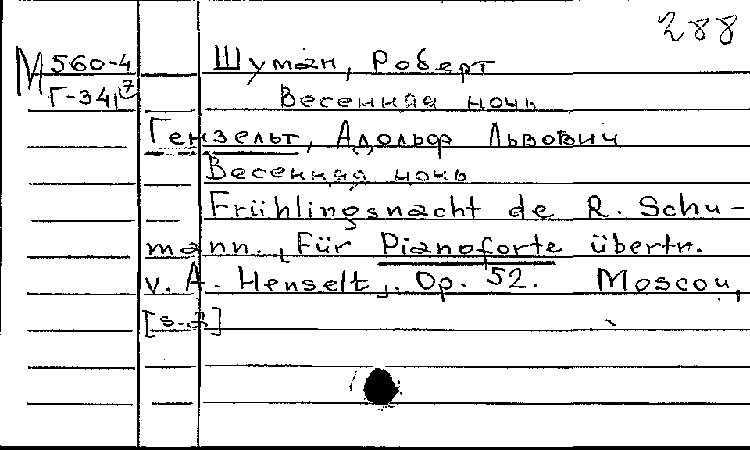 288
М 560-4 Шуман, Роберт
Г-341 Весенняя ночь
Гензельт, Адольф Львович
Весенняя ночь
Frühlingsnacht de R. Schu-
mann. Für Pianoforte übertr.
v. A. Henselt. Op. 52. Moscou,